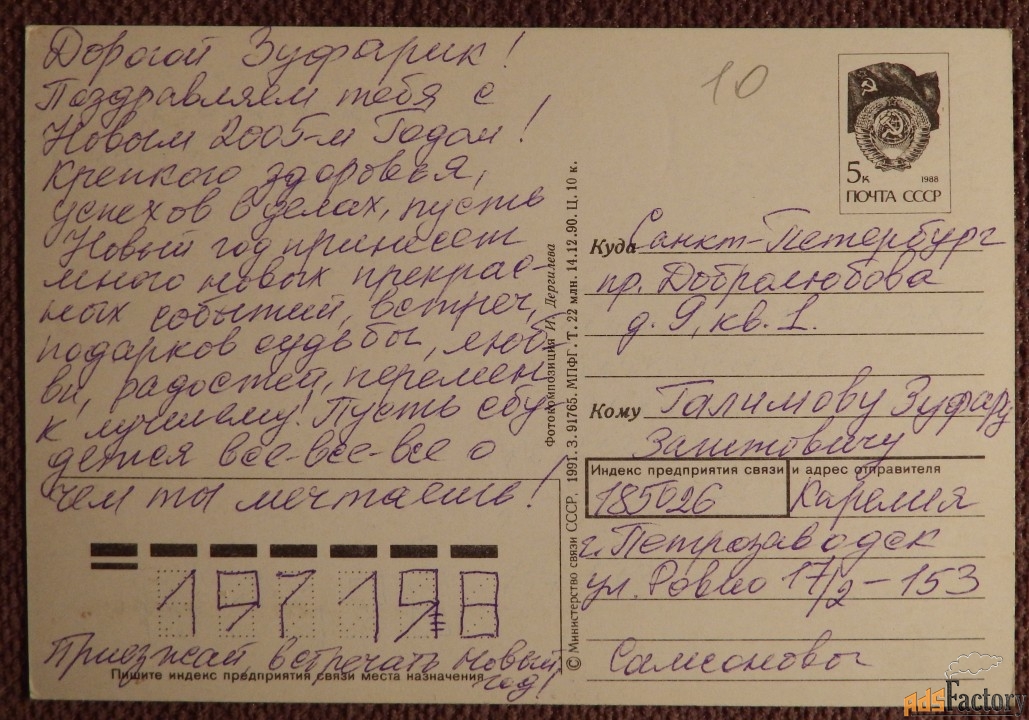 Дорогой Зуфарик!
Поздравляем тебя с
Новым 2005-м Годом!
Крепкого здоровья,
успехов в делах, пусть
Новый год принесет
много новых прекрас-
ных событий, встреч,
подарков судьбы, люб-
ви, радостей, перемен
к лучшему! Пусть сбу-
дется все-все-все о
чем ты мечтаешь!
197198
Приезжай встречать Новый
год!
Пишите индекс предприятия связи места назначения
© Министерство связи СССР, 1991. З. 91765. МПФГ. Т. 22 млн. 14.12.90. Ц. 10 к.
Фотокомпозиция И. Дергилева
10
5к 1988
ПОЧТА СССР
Куда Санкт-Петербург
пр. Добролюбова
д. 9, кв. 1.
Кому Галимову Зуфару
Индекс предприятия связи и адрес отправителя
185026 Карелия
г. Петрозаводск
ул. Ровио 17/2 - 153
Самсоновы
AdsFactory